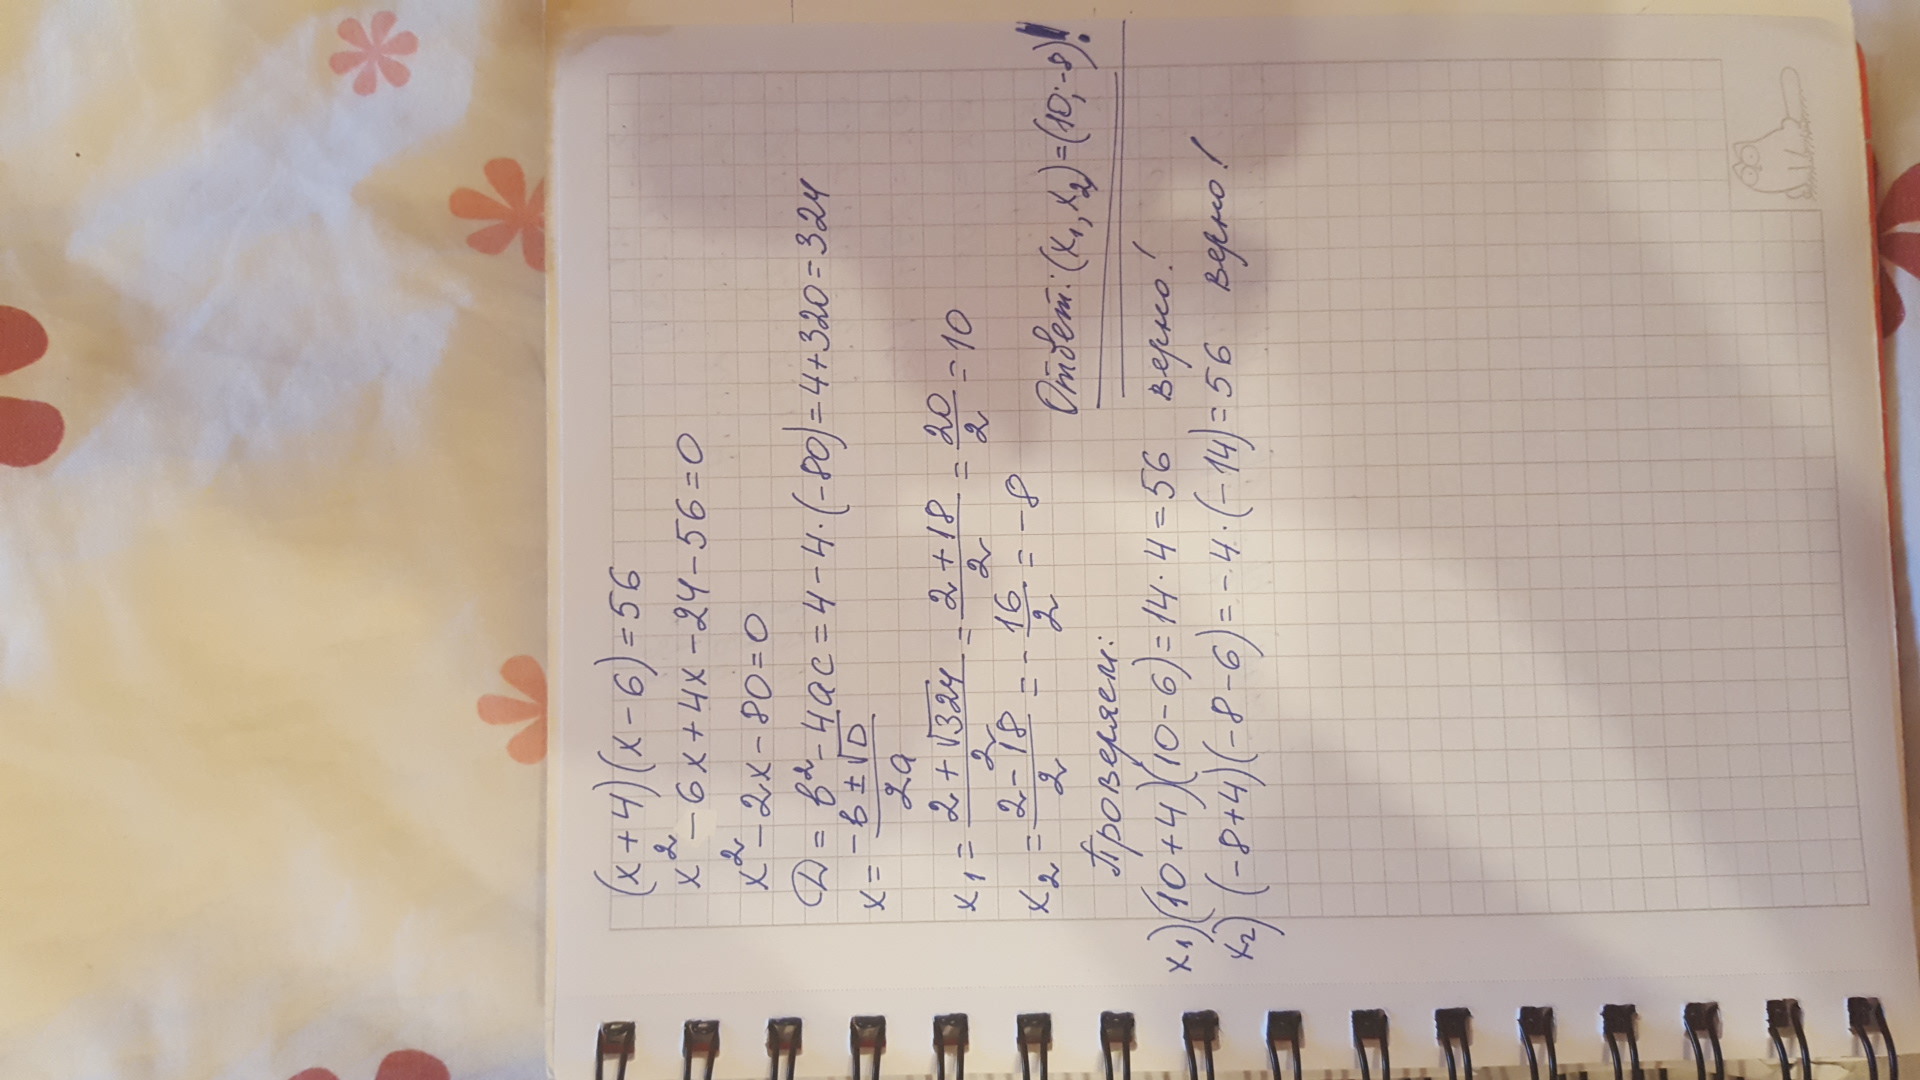 (x+4)(x-6)=56
x²-6x+4x-24-56=0
x²-2x-80=0
D=b²-4ac=4-4·(-80)=4+320=324
x=(-b±√D)/2a
x₁=(2+√324)/2=(2+18)/2=20/2=10
x₂=(2-18)/2=-16/2=-8
Ответ: (x₁,x₂)=(10;-8)!
Проверяем:
x₁)(10+4)(10-6)=14·4=56 верно!
x₂)(-8+4)(-8-6)=-4·(-14)=56 верно!